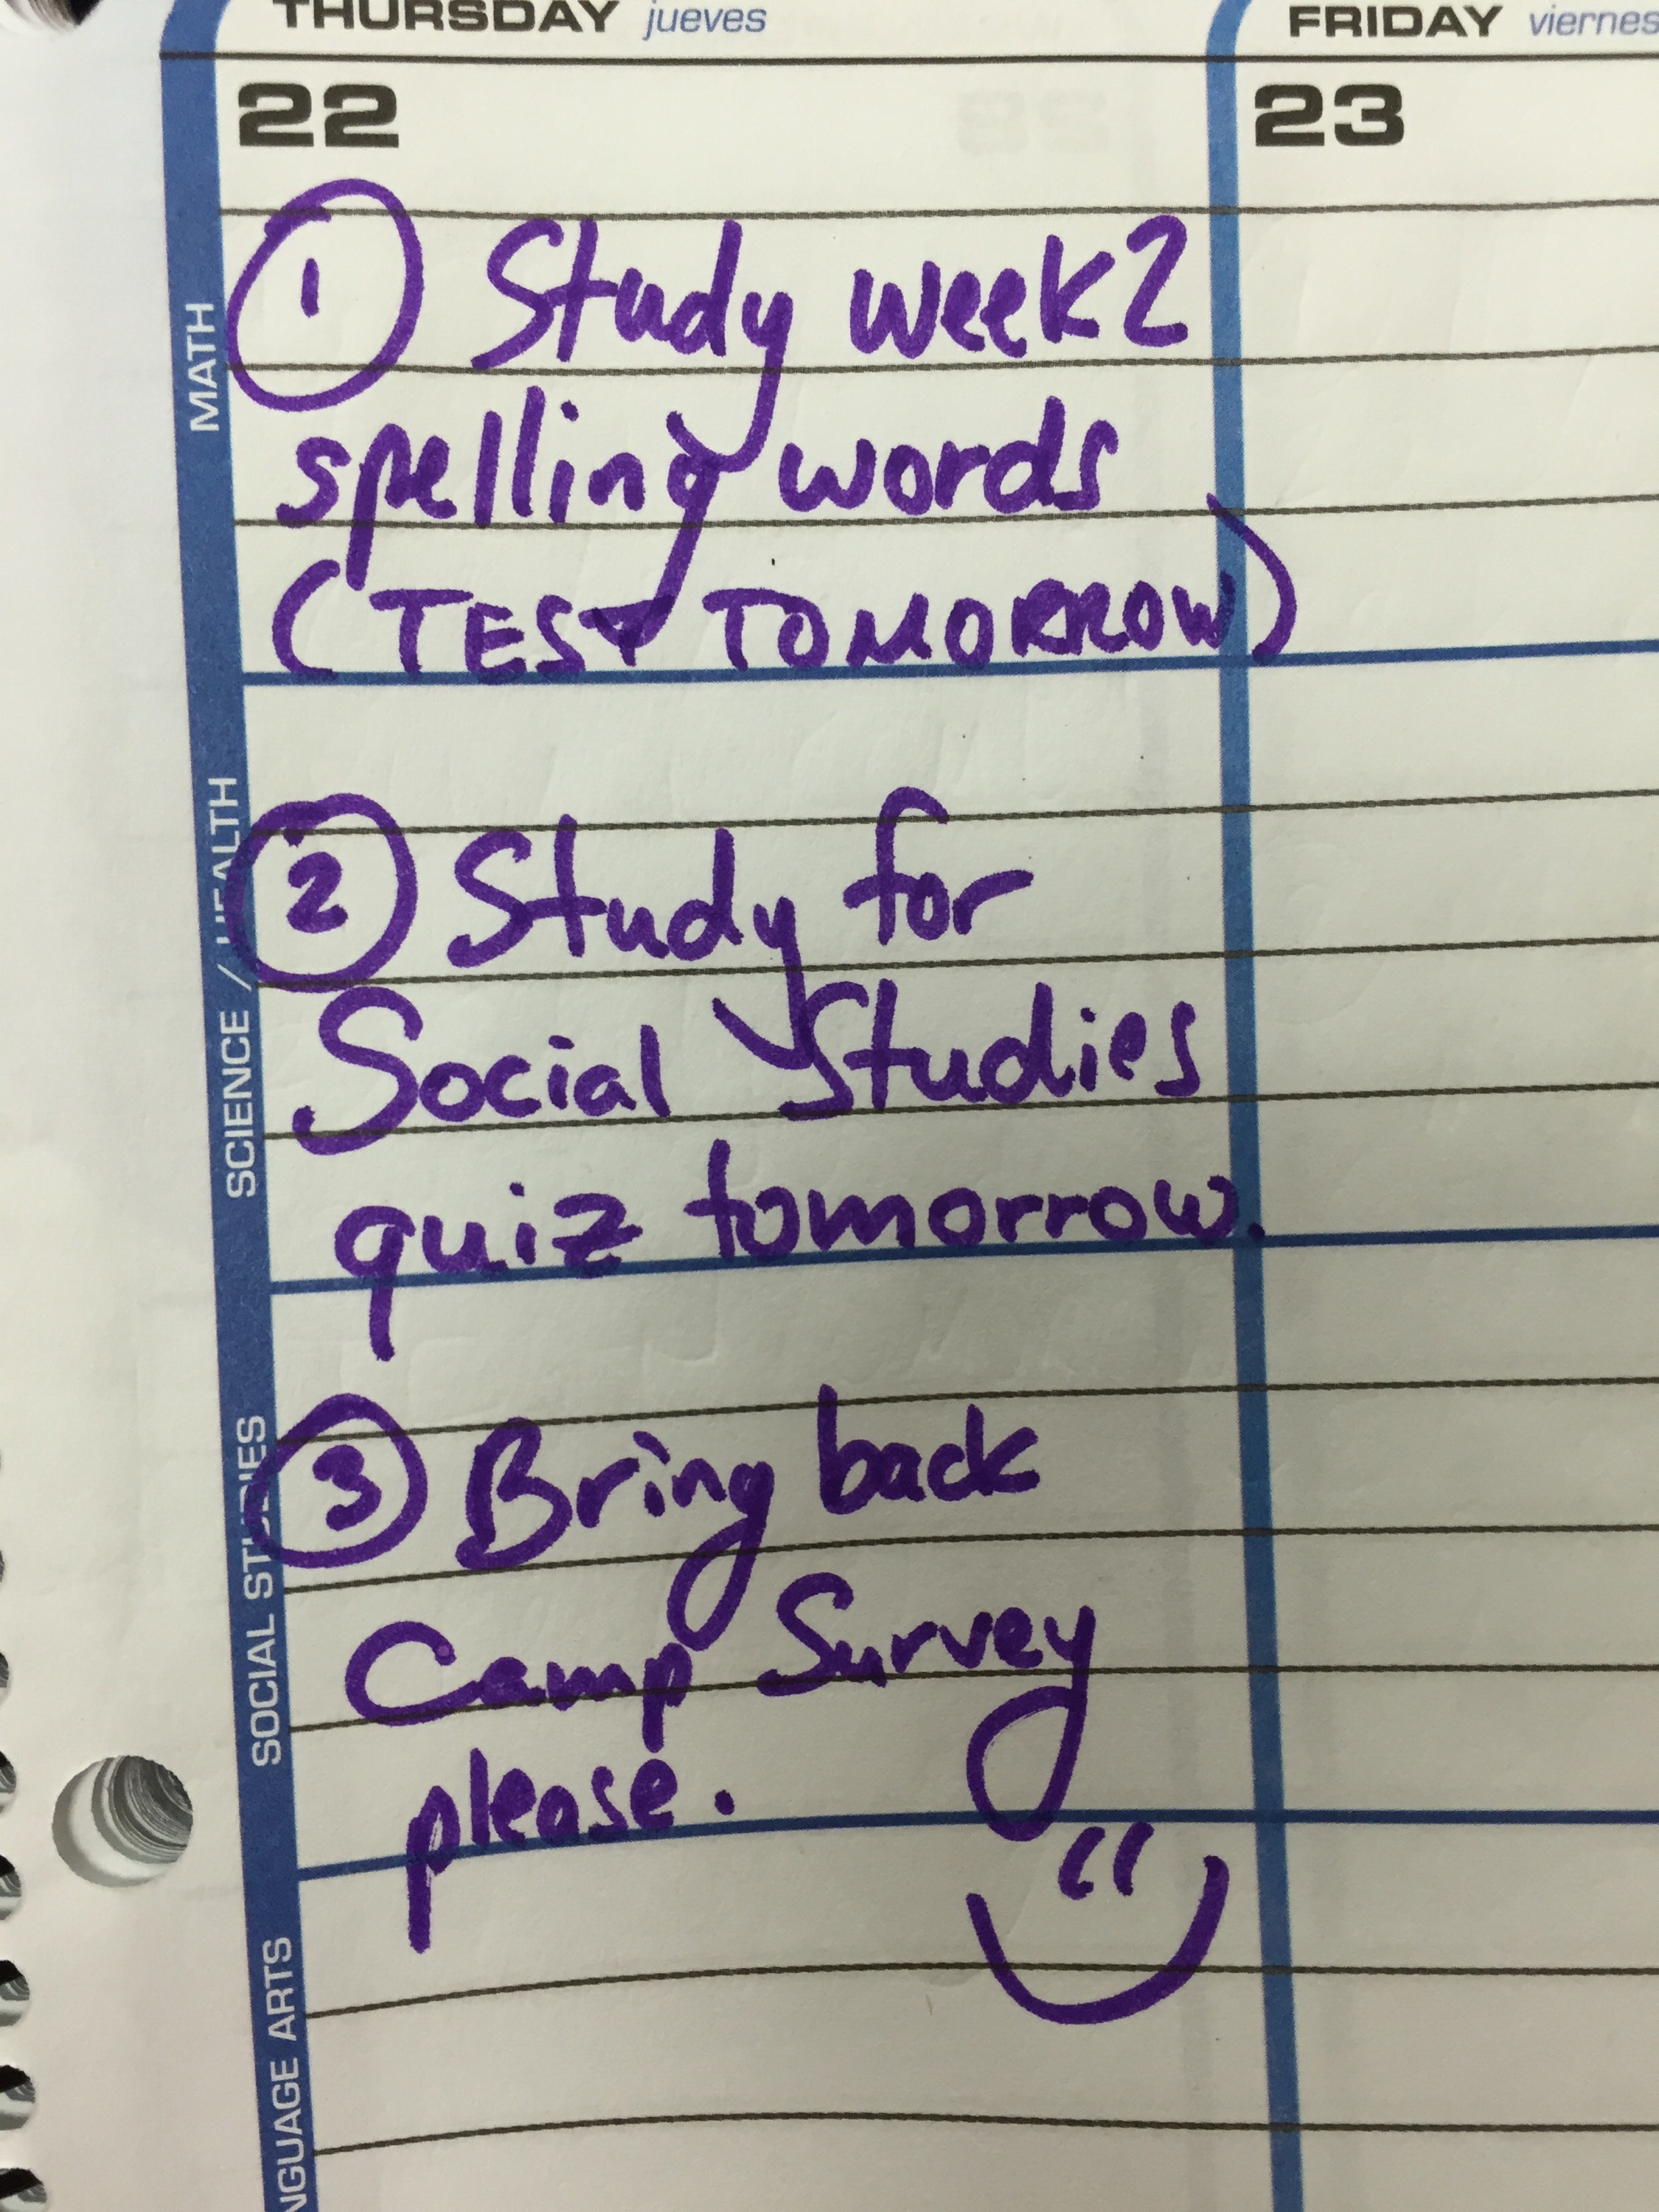 THURSDAY jueves
FRIDAY viernes
22
23
MATH
① Study week 2
spelling words
(TEST TOMORROW)
SCIENCE / HEALTH
② Study for
Social Studies
quiz tomorrow.
SOCIAL STUDIES
③ Bring back
Camp Survey
please.
NGUAGE ARTS